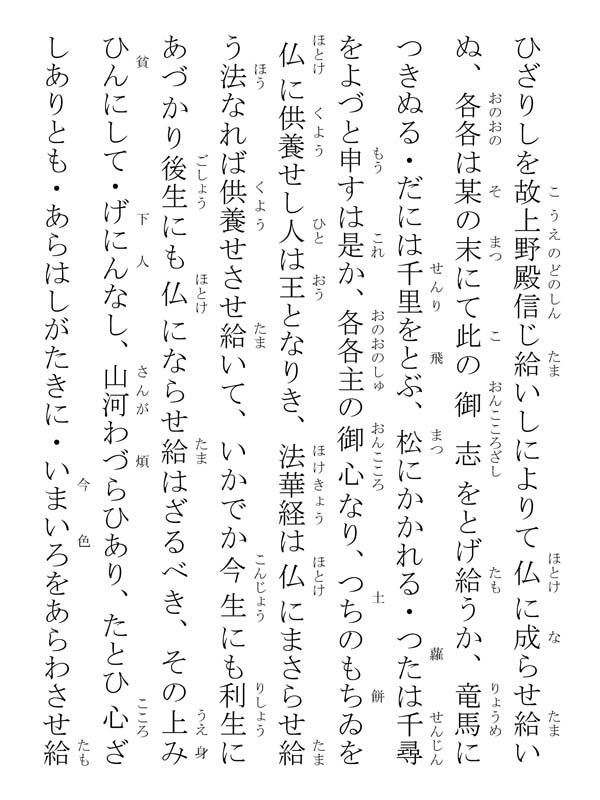 ひざりしを故上野殿信じ給いしによりて仏に成らせ給い
ぬ、各各は某の末にて此の御志をとげ給うか、竜馬に
つきぬる・だには千里をとぶ、松にかかれる・つたは千尋
をよづと申すは是か、各各主の御心なり、つちのもちゐを
仏に供養せし人は王となりき、法華経は仏にまさらせ給
う法なれば供養せさせ給いて、いかでか今生にも利生に
あづかり後生にも仏にならせ給はざるべき、その上み
ひんにして・げにんなし、山河わづらひあり、たとひ心ざ
しありとも・あらはしがたきに・いまいろをあらわさせ給